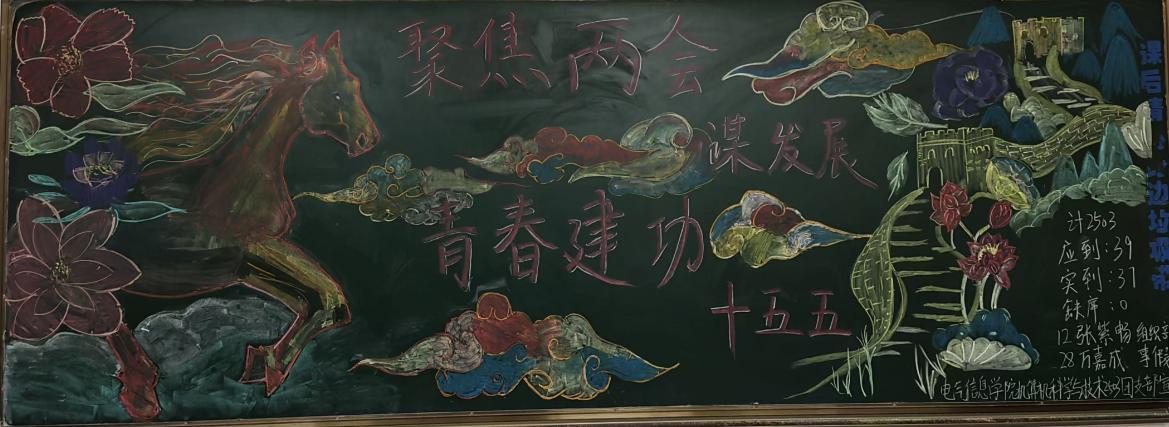 聚焦两会
谋发展
青春建功
十五五
计2503
应到:39
实到:37
缺席:0
12张紫畅 组织
28万嘉成 事假
电气信息学院计算机科学与技术2503团支部宣
课后请
边垃圾